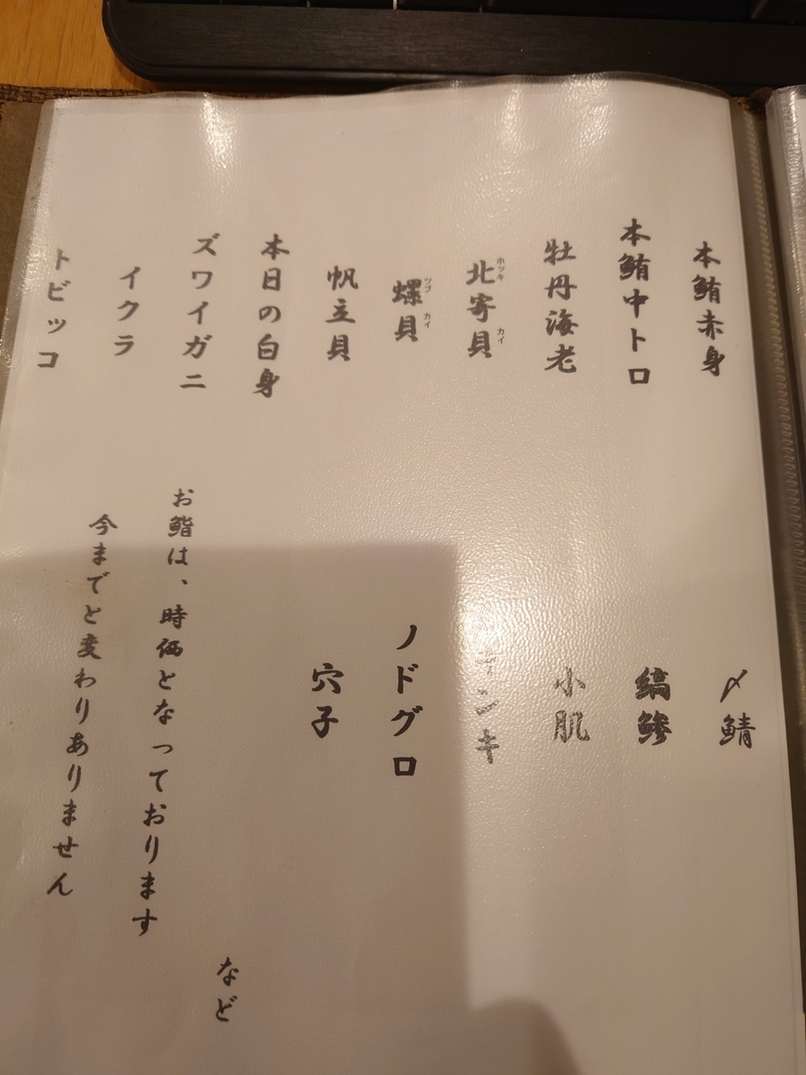 本鮪赤身
本鮪中トロ
牡丹海老
ホッキ カイ
北寄貝
ツブ カイ
螺貝
帆立貝
本日の白身
ズワイガニ
イクラ
トビッコ
〆鯖
縞鯵
小肌
キンキ
ノドグロ
穴子
など
お鮨は、時価となっております
今までと変わりありません